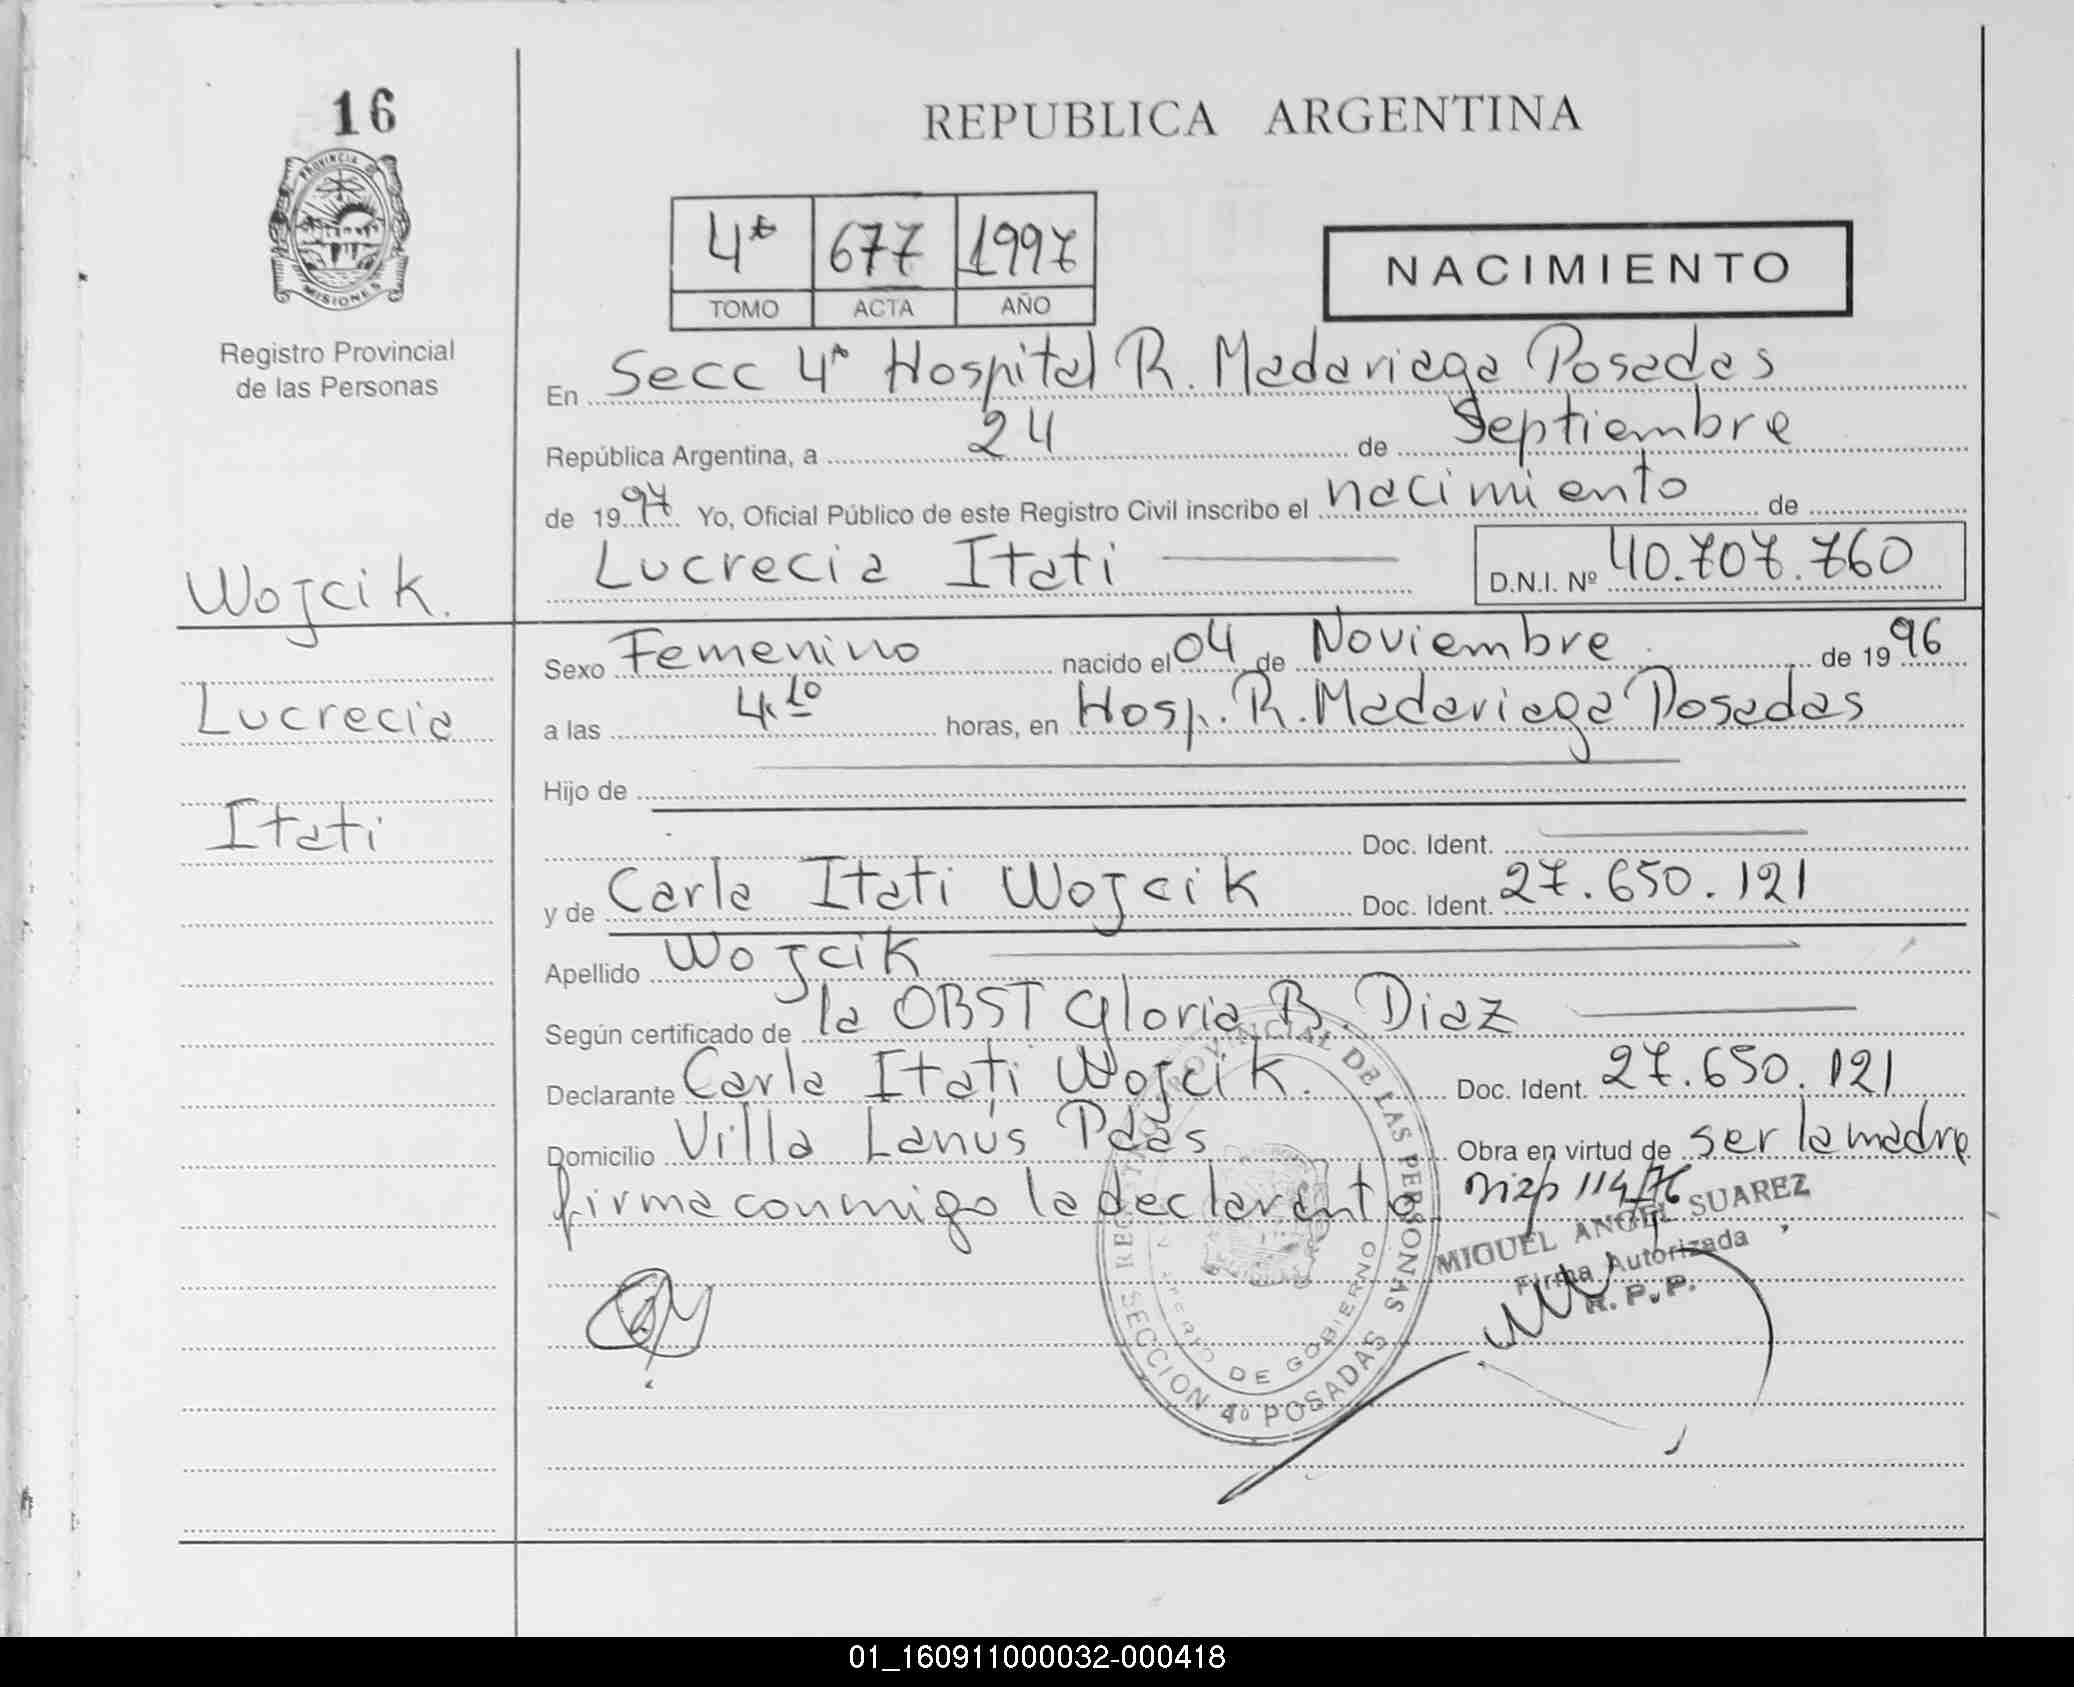 16
REPUBLICA ARGENTINA
PROVINCIA DE
MISIONES
Registro Provincial
de las Personas
4ª 677 1997
TOMO ACTA AÑO
NACIMIENTO
En Secc 4ª Hospital R. Madariaga Posadas
República Argentina, a 24 de Septiembre
de 1997 Yo, Oficial Público de este Registro Civil inscribo el nacimiento de
Lucrecia Itati D.N.I. Nº 40.707.760
Wojcik.
Lucrecia
Itati
Sexo Femenino nacido el 04 de Noviembre de 1996
a las 4,10 horas, en Hosp. R. Madariaga Posadas
Hijo de
Doc. Ident.
y de Carla Itati Wojcik Doc. Ident. 27.650.121
Apellido Wojcik
Según certificado de la OBST Gloria B. Diaz
Declarante Carla Itati Wojcik. Doc. Ident. 27.650.121
Domicilio Villa Lanús Pdas Obra en virtud de ser la madre
firma conmigo la declarante 114/76
MIGUEL ANGEL SUAREZ
Firma Autorizada
R. P. P.
REGISTRO PROVINCIAL DE LAS PERSONAS
DE GOBIERNO
SECCION 4º POSADAS
01_160911000032-000418